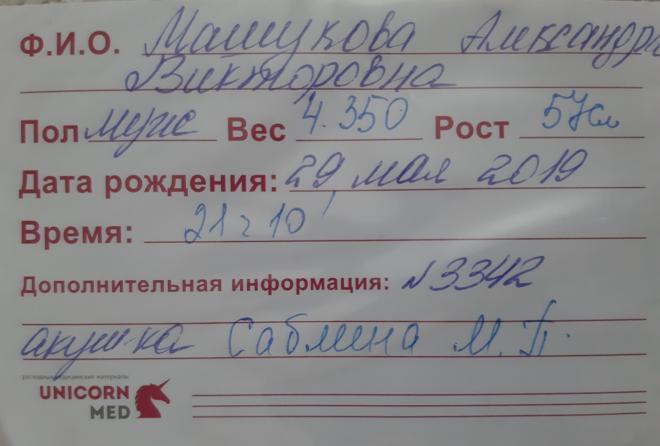 Ф.И.О. Машукова Александра
Викторовна
Пол муж Вес 4.350 Рост 57см
Дата рождения: 29 мая 2019
Время: 21ч 10'
Дополнительная информация: №3342
акуш-ка Саблина М.П.
расходные медицинские материалы
UNICORN
MED